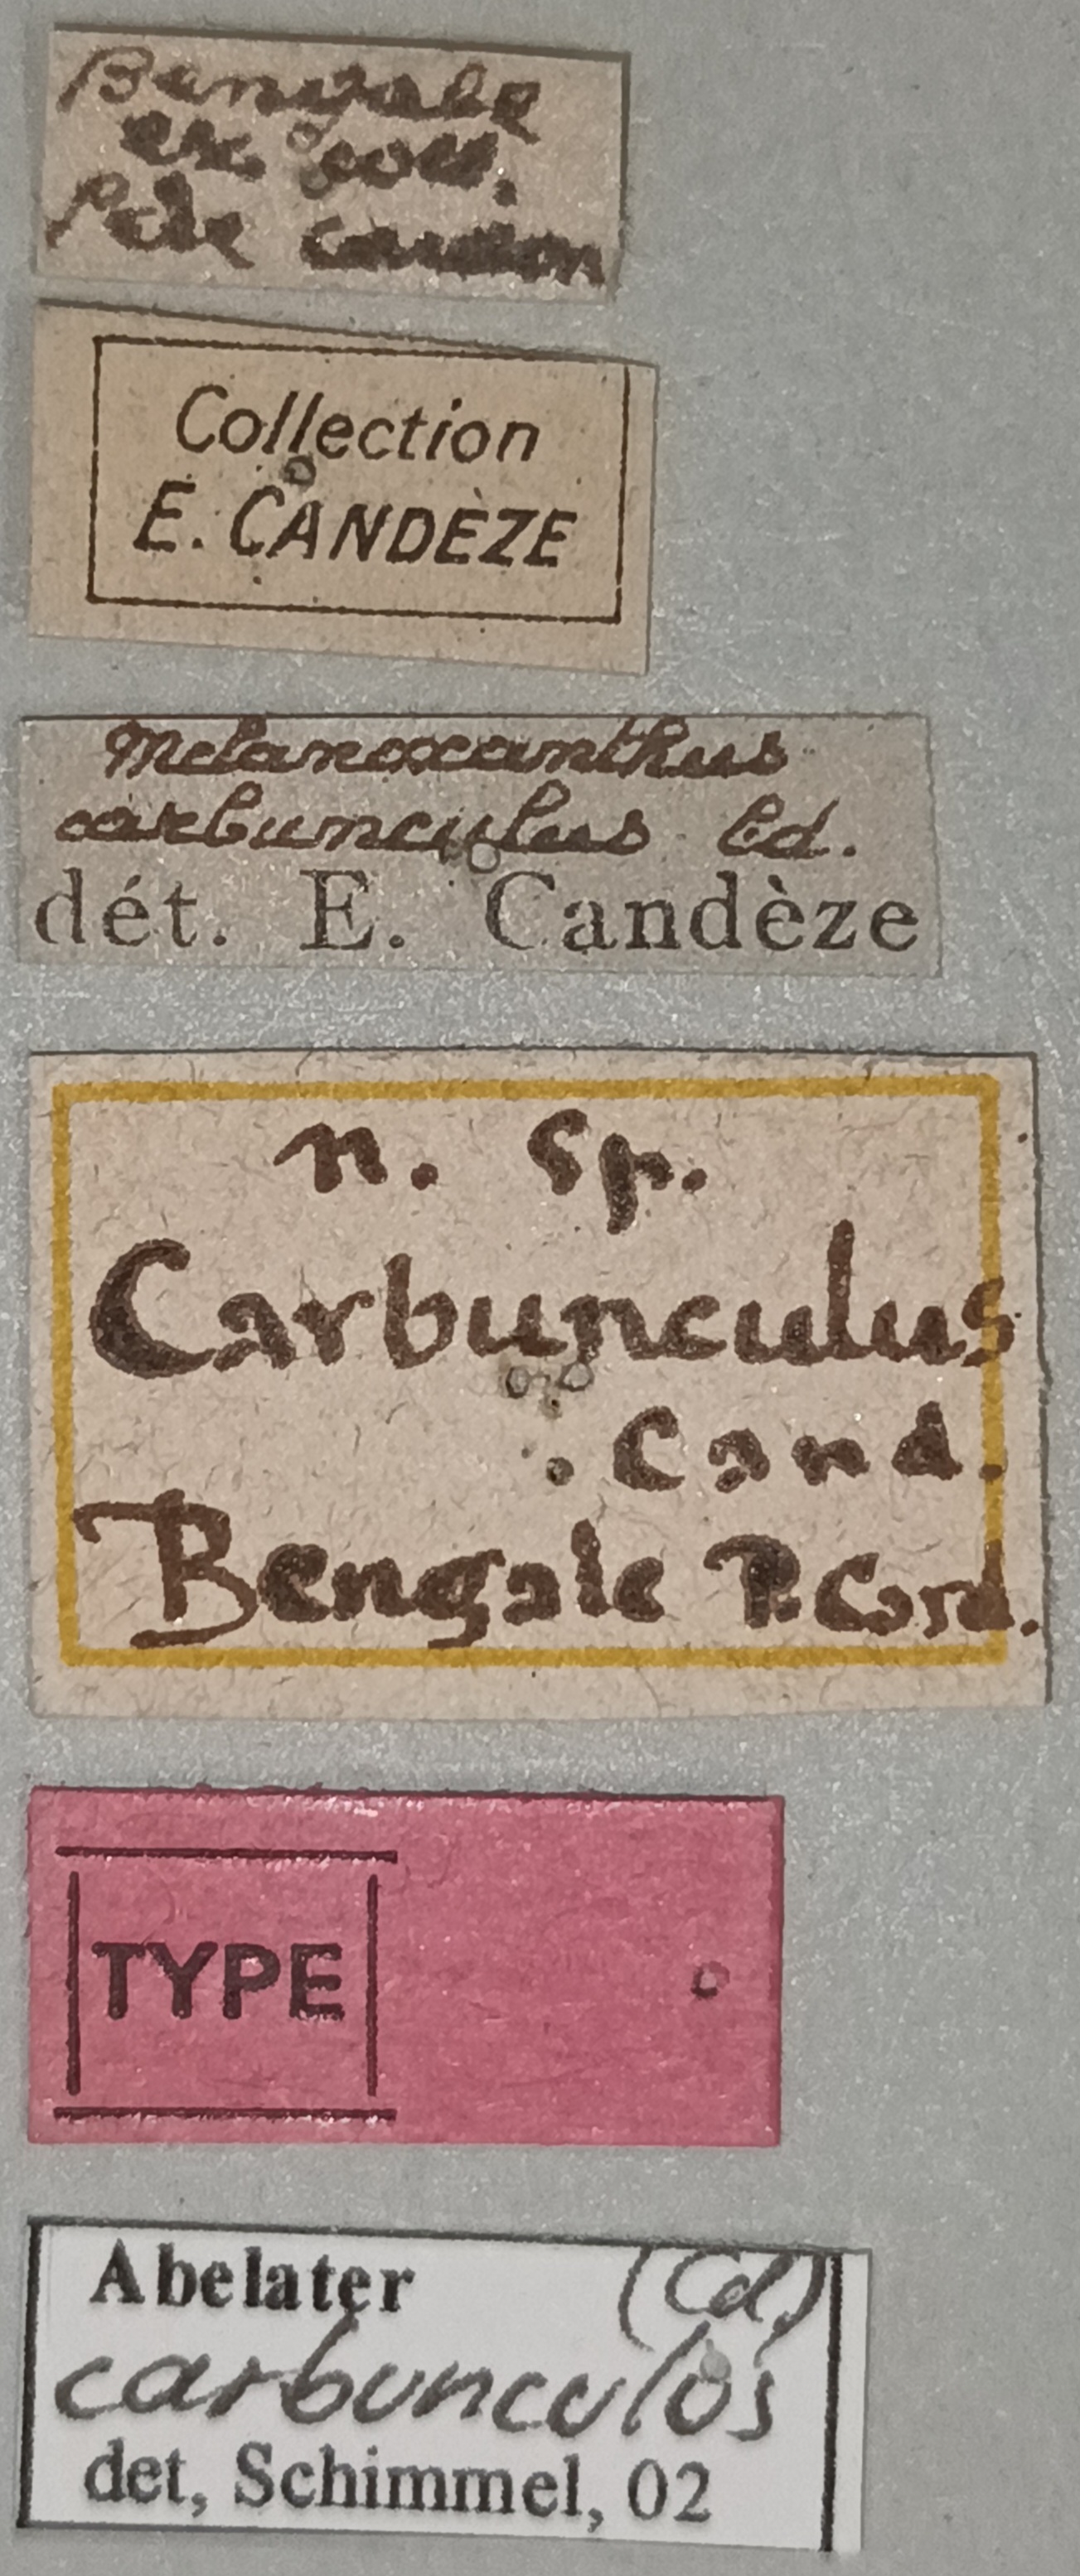 Bengale
ex. coll.
Père Cardon
Collection
E. CANDÈZE
Melanoxanthus
carbunculus Cd.
dét. E. Candèze
n. sp.
Carbunculus
. Cand.
Bengale P. Card.
TYPE
Abelater (Cd)
carbunculus
det, Schimmel, 02